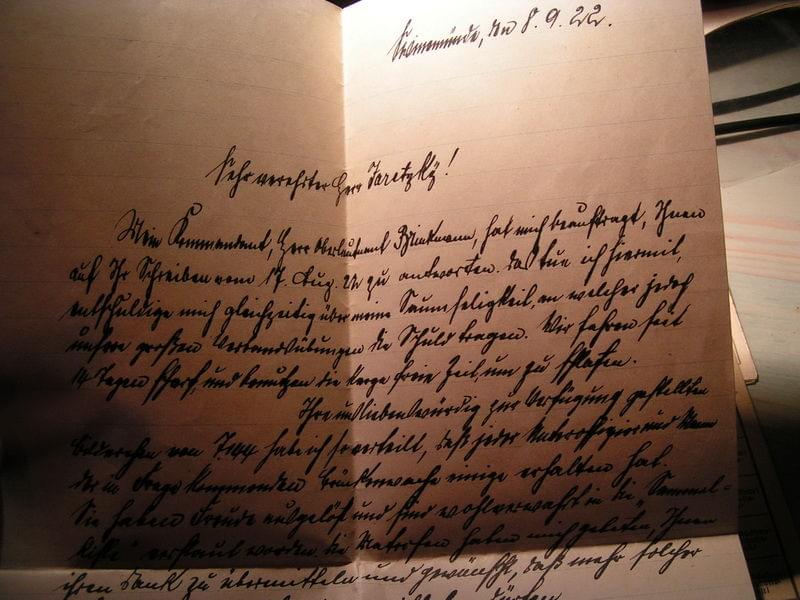 Swinemünde, den 8. 9. 22.
Sehr verehrter Herr Taretzky!
Mein Kommandant, Herr Oberleutnant, hat mich beauftragt, Ihnen
auf Ihr Schreiben vom 17. Aug. 22 zu antworten. Das tue ich hiermit,
entschuldige mich gleichzeitig über meine Saumseligkeit, an welcher jedoch
unsere großen Verbandsübungen die Schuld tragen. Wir fahren seit
14 Tagen scharf, und benutzen die karge freie Zeit, um zu schlafen.
Ihre uns liebenswürdig zur Verfügung gestellten
Bilderchen von haben ich so verteilt, daß jeder Unteroffizier und Mann
der in Frage kommenden Brückenwache einige erhalten hat.
Sie haben Freude ausgelöst und sind wohlverwahrt in die "Sammel-
kiste" verstaut worden. Die Matrosen haben mich gebeten, Ihnen
ihren Dank zu übermitteln und gewünscht, daß mehr solcher
dürften